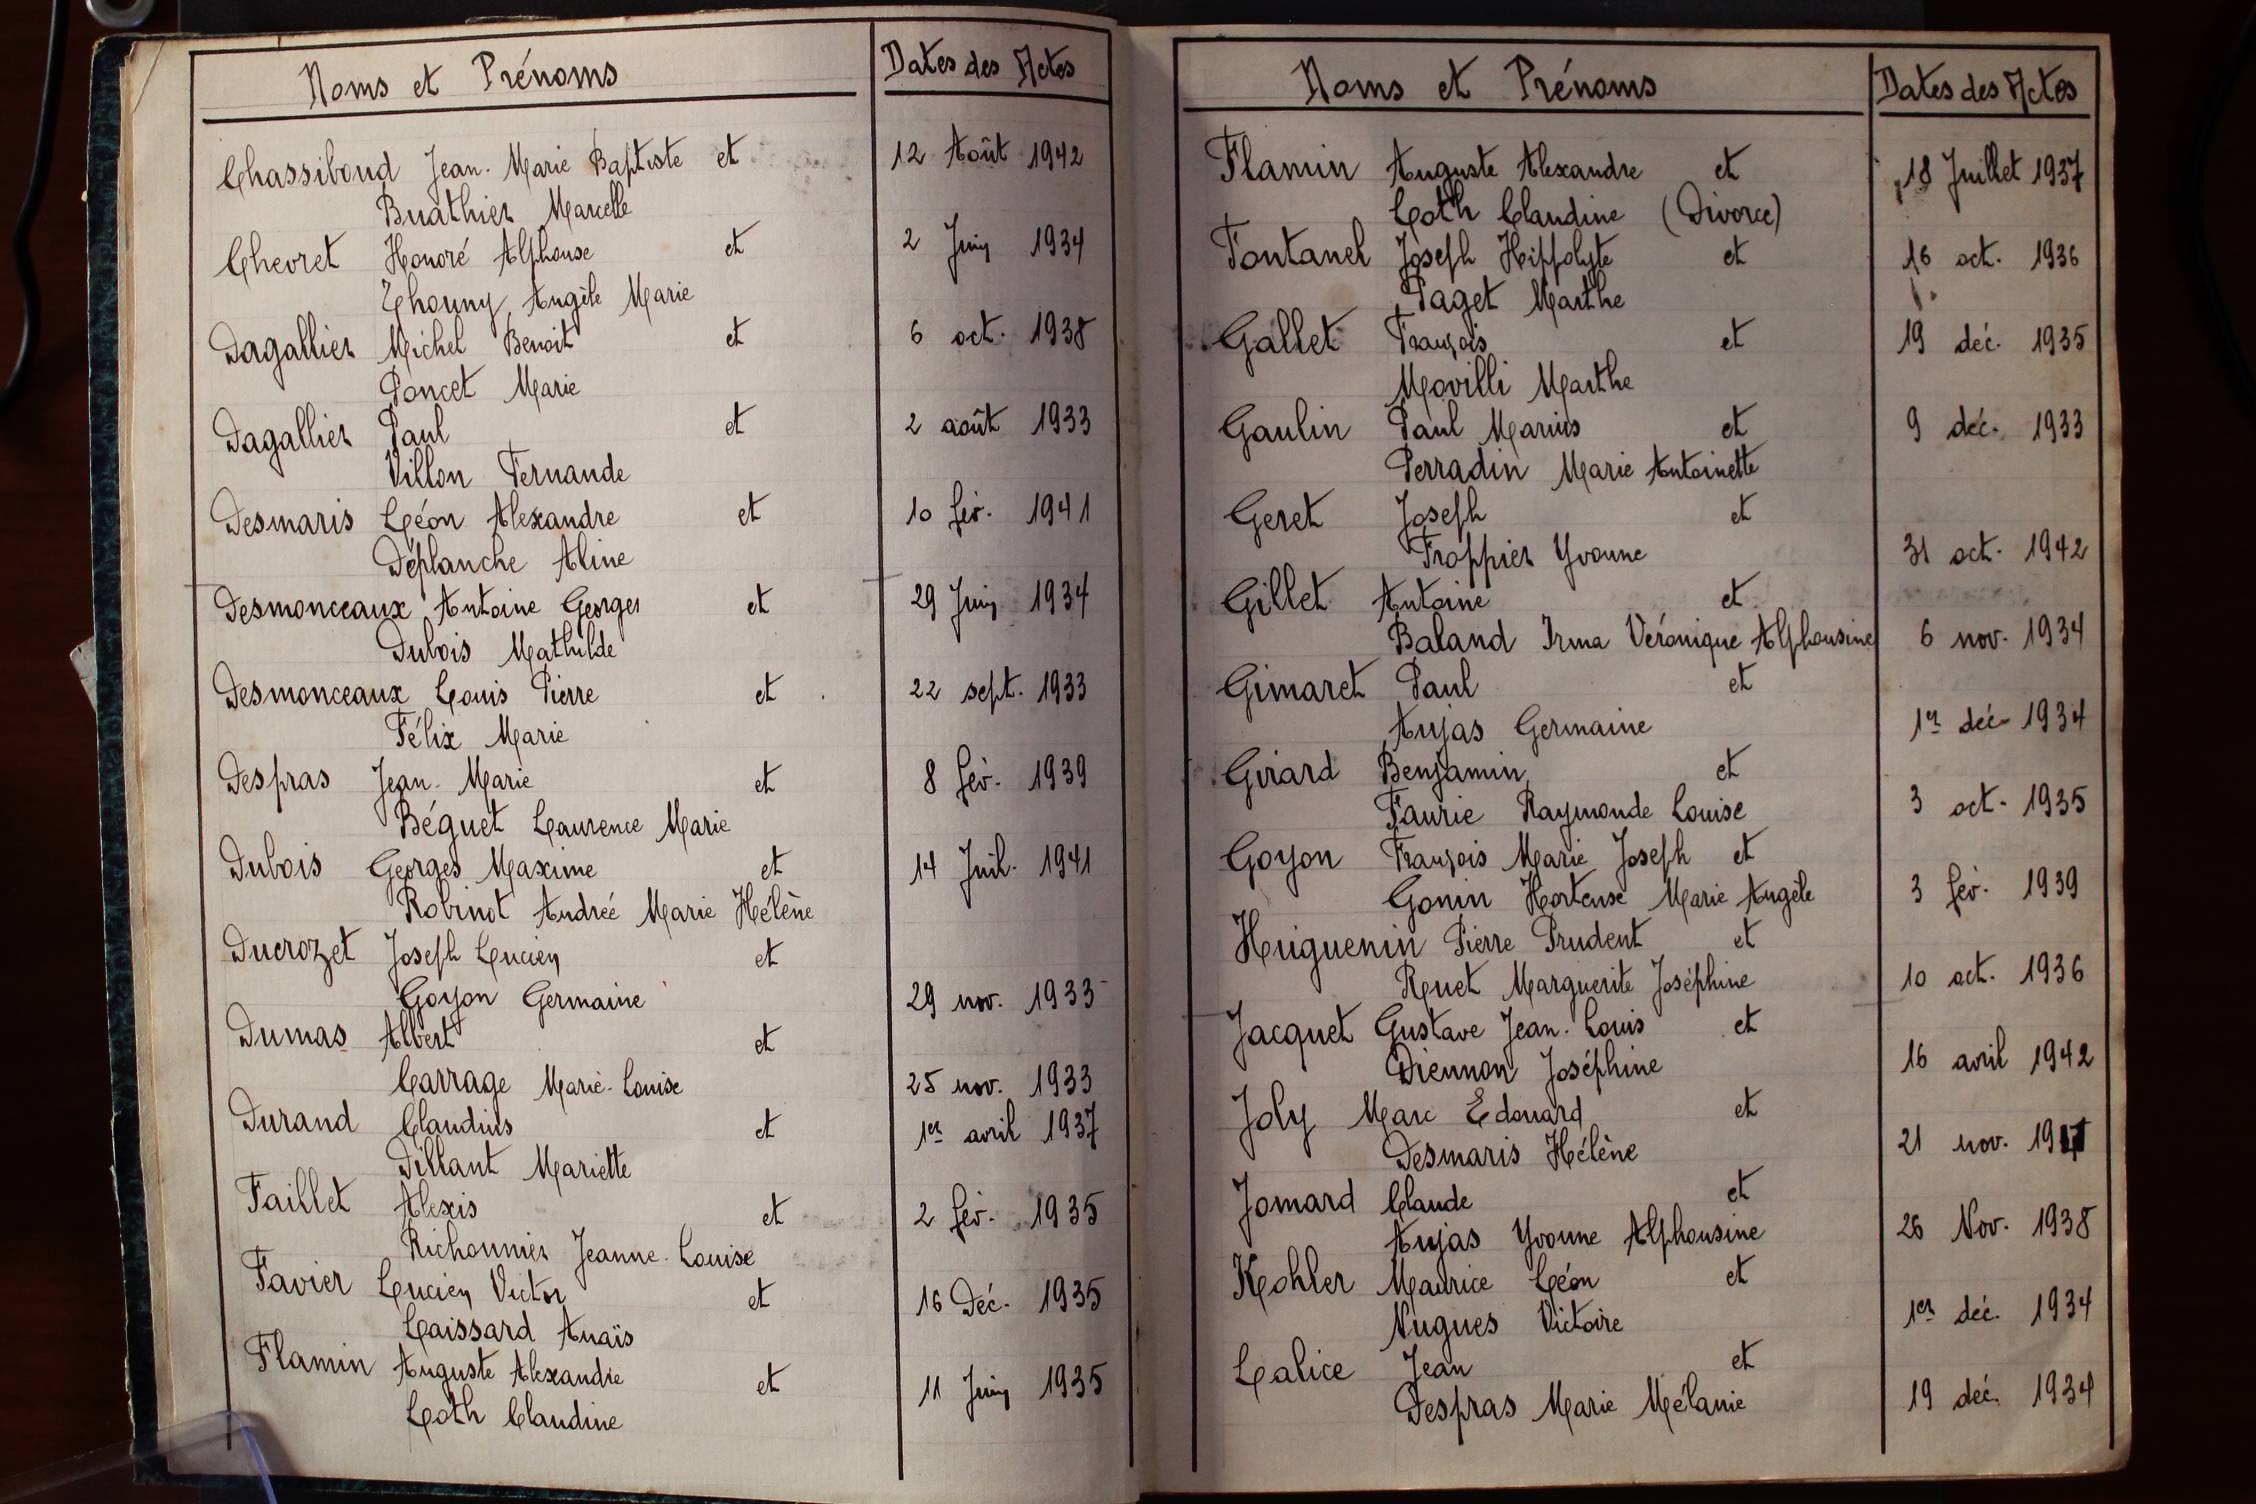 Noms et Prénoms Dates des Actes
Chassiboud Jean-Marie Baptiste et 12 Août 1942
Buathier Marcelle
Chevret Honoré Alphonse et 2 Juin 1934
Thouny Angèle Marie
Dagallier Michel Benoit et 6 oct. 1938
Poncet Marie
Dagallier Paul et 2 août 1933
Villon Fernande
Desmaris Léon Alexandre et 10 fév. 1941
Déplanche Aline
Desmonceaux Antoine Georges et 29 Juin 1934
Dubois Mathilde
Desmonceaux Louis Pierre et 22 sept. 1933
Félix Marie
Despras Jean-Marie et 8 fév. 1939
Béguet Laurence Marie
Dubois Georges Maxime et 14 Juil. 1941
Robinot Andrée Marie Hélène
Ducrozet Joseph Lucien et
Goyon Germaine 29 nov. 1933
Dumas Albert et
Carrage Marie-Louise 25 nov. 1933
Durand Claudius et 1er avril 1937
Dillant Mariette
Faillet Alexis et 2 fév. 1935
Richonnier Jeanne-Louise
Favier Lucien Victor et 16 Déc. 1935
Laissard Anaïs
Flamin Auguste Alexandre et 11 Juin 1935
Loth Claudine
Noms et Prénoms Dates des Actes
Flamin Auguste Alexandre et 18 Juillet 1937
Loth Claudine (Divorce)
Fontanel Joseph Hippolyte et 16 oct. 1936
Paget Marthe
Gallet François et 19 déc. 1935
Movilli Marthe
Gaulin Paul Marius et 9 déc. 1933
Perradin Marie Antoinette
Geret Joseph et
Froppier Yvonne 31 oct. 1942
Gillet Antoine et
Baland Irma Véronique Alphonsine 6 nov. 1934
Gimaret Paul et
Aujas Germaine 1er déc. 1934
Girard Benjamin et
Faurie Raymonde Louise 3 oct. 1935
Goyon François Marie Joseph et
Gonin Hortense Marie Angèle 3 fév. 1939
Huguenin Pierre Prudent et
Ruet Marguerite Joséphine 10 oct. 1936
Jacquet Gustave Jean-Louis et
Diennon Joséphine 16 avril 1942
Joly Marc Edouard et
Desmaris Hélène 21 nov.
Jomard Claude et
Aujas Yvonne Alphonsine 26 Nov. 1938
Kohler Maurice Léon et
Nugues Victoire 1er déc. 1934
Lalice Jean et
Despras Marie Mélanie 19 déc. 1934